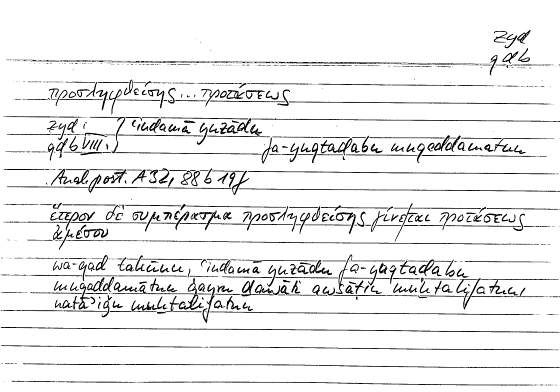 zyd
qḍb
προσληφθείσης ... προτάσεως
zyd : } ʿindamā yuzādu
qḍb VIII : } fa-yuqtaḍabu muqaddamatun
Anal. post. A 32, 88 b 19f
ἕτερον δὲ συμπέρασμα προσληφθείσης γίνεται προτάσεως
ἀμέσου
wa-qad takūnu, ʿindamā yuzādu fa-yuqtaḍabu
muqaddamātun ġayru ḏawāti awsāṭin muḫtalifatun,
natāʾiǧu muḫtalifatun